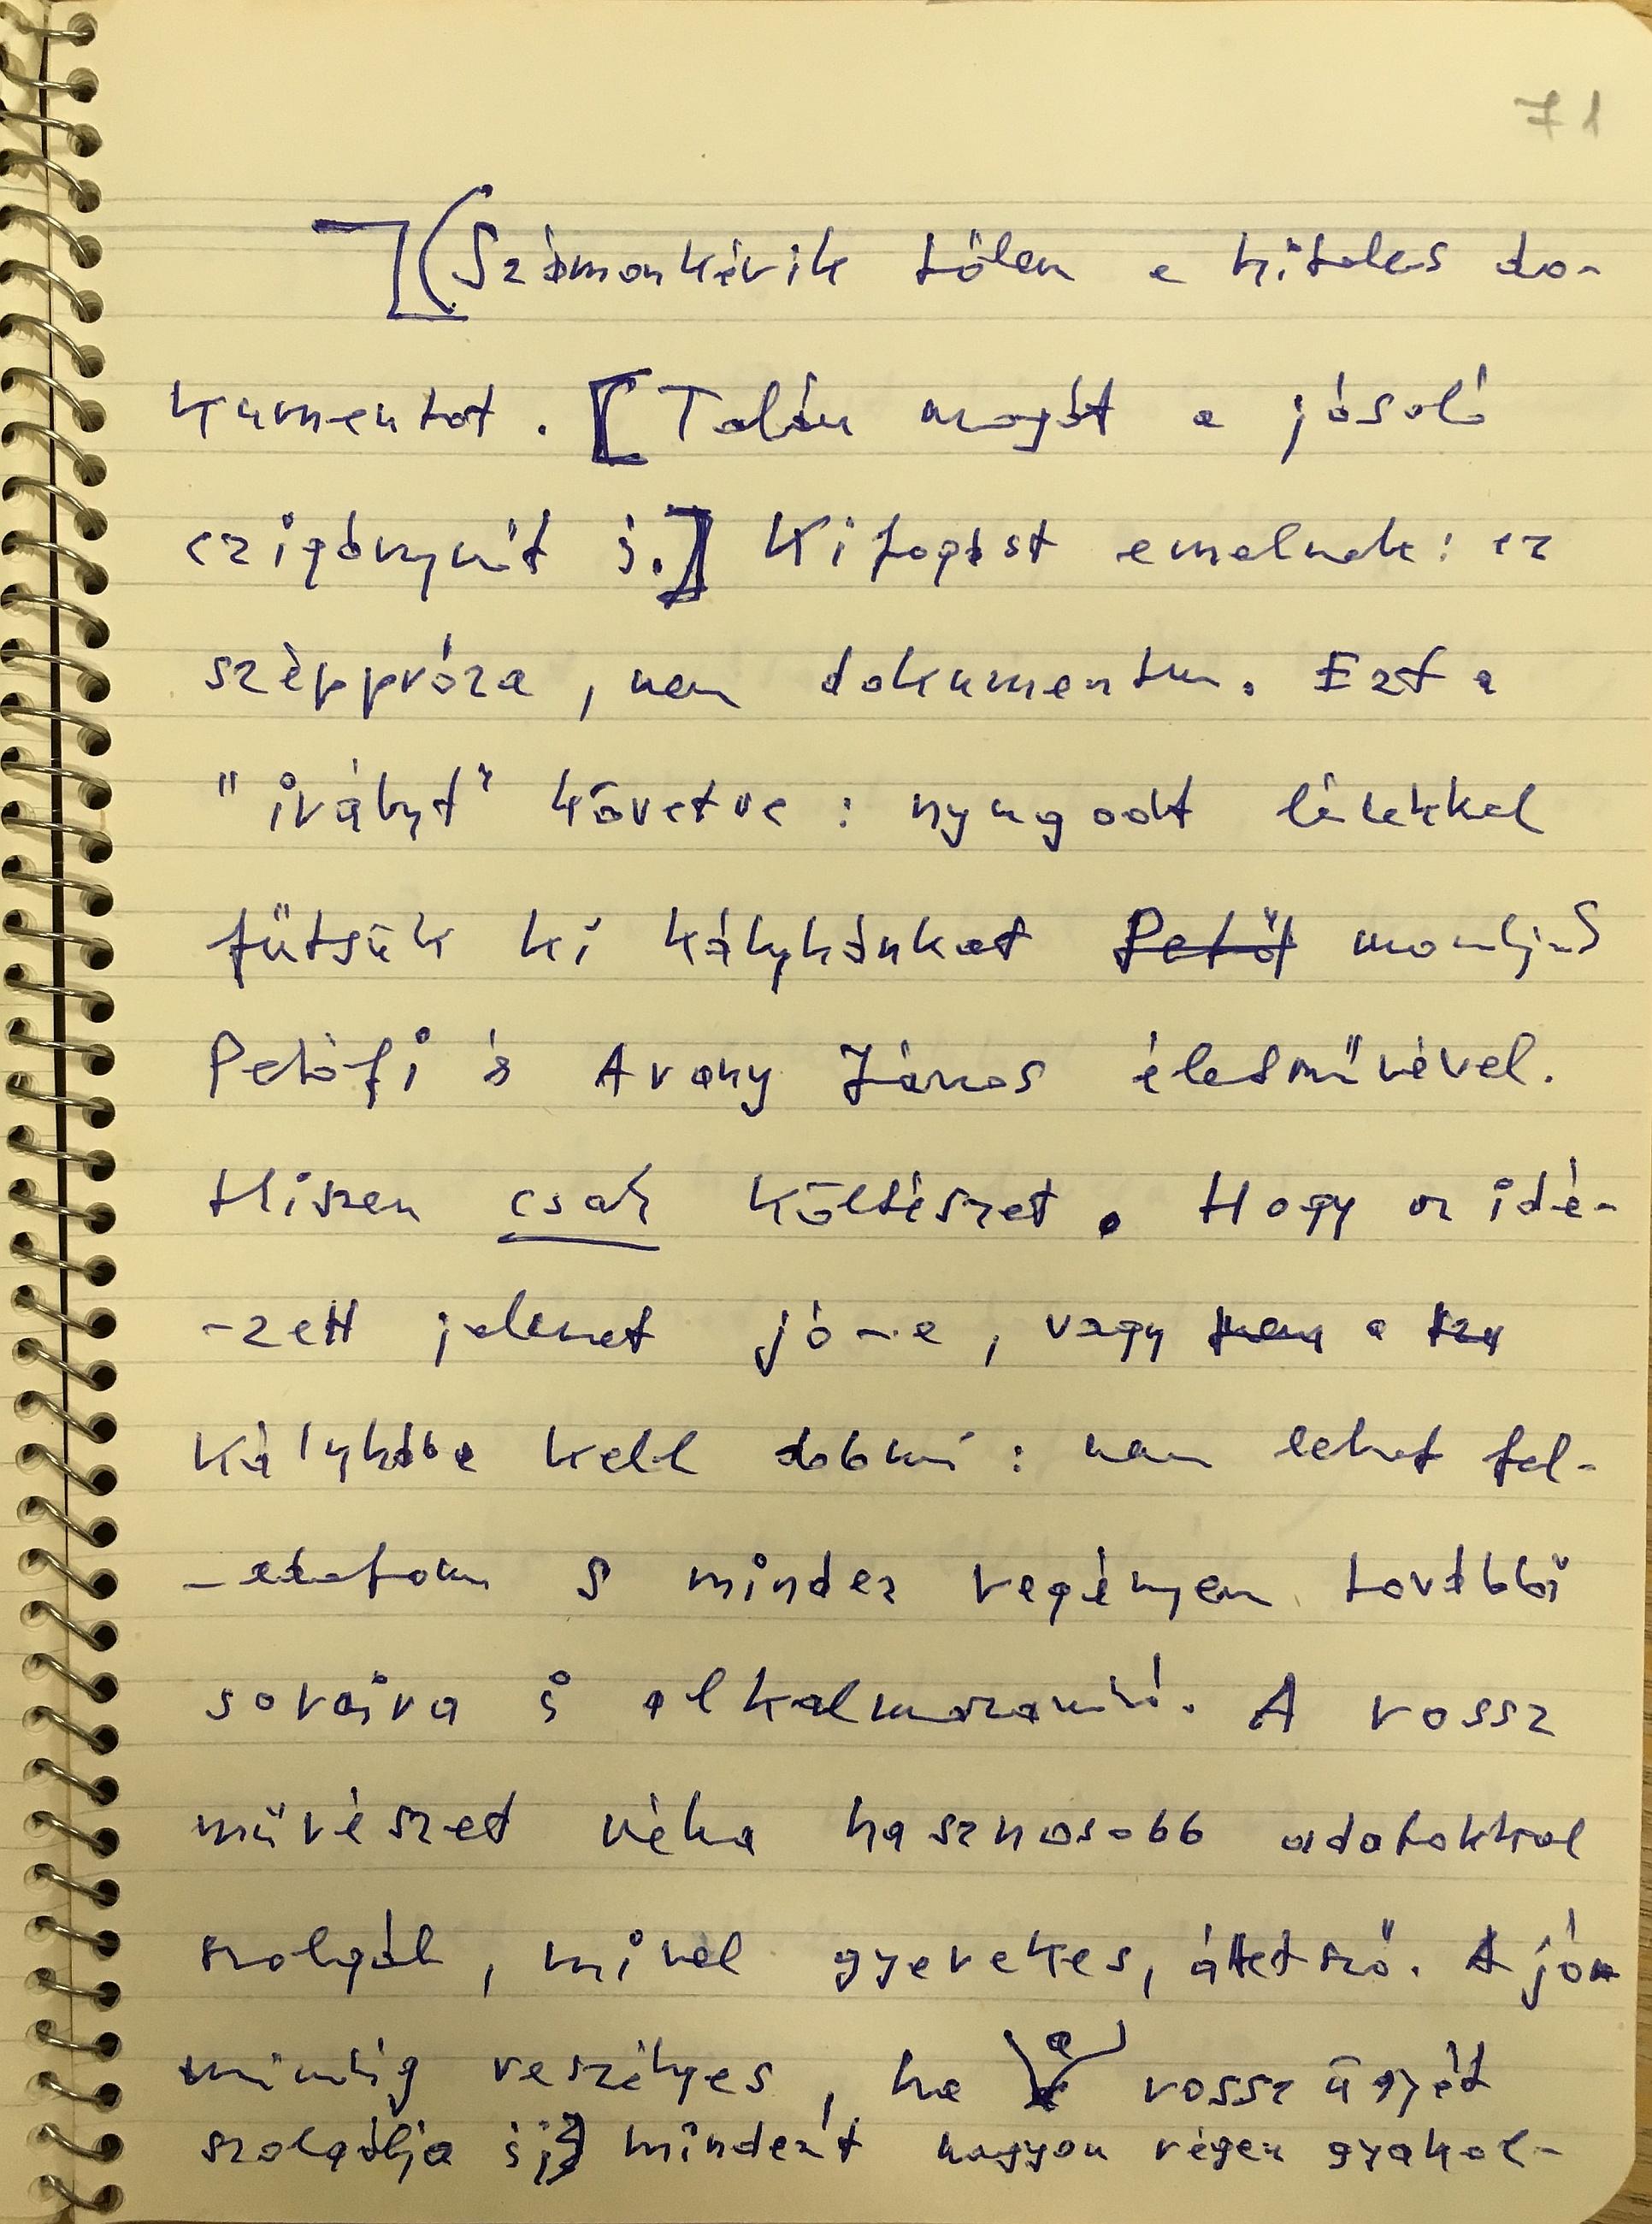 71
[(Számonkérik tőlem a hiteles do-
kumentot. [Talán magát a jósoló
czigánynőt is.] Kifogást emelnek: ez
széppróza, nem dokumentum. Ezt a
"irányt" követve: nyugodt lélekkel
fűtsük ki kályhánkat Petőf mondjuk
Petőfi és Arany János életművével.
Hiszen csak költészet. Hogy az idé-
-zett jelenet jó-e, vagy a
kályhába kell dobni: nem lehet fel-
-adatom s mindez regényem további
soraira is alkalmazandó. A rossz
művészet néha hasznosabb adatokkal
szolgál, mivel gyerekes, áttetsző. A jó
mindig veszélyes, ha a rossz ügyét
szolgálja is;] mindezt nagyon régen gyakol-